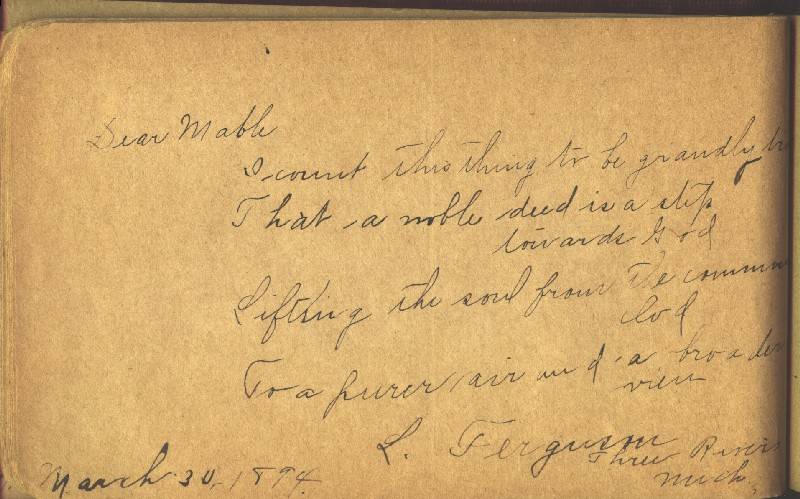 Dear Mable
I count this thing to be grandly
That a noble deed is a step
towards God
Lifting the soul from the
clod
To a purer air and a broader
view
L. Ferguson
Three Rivers
Mich.
March 30, 1894.